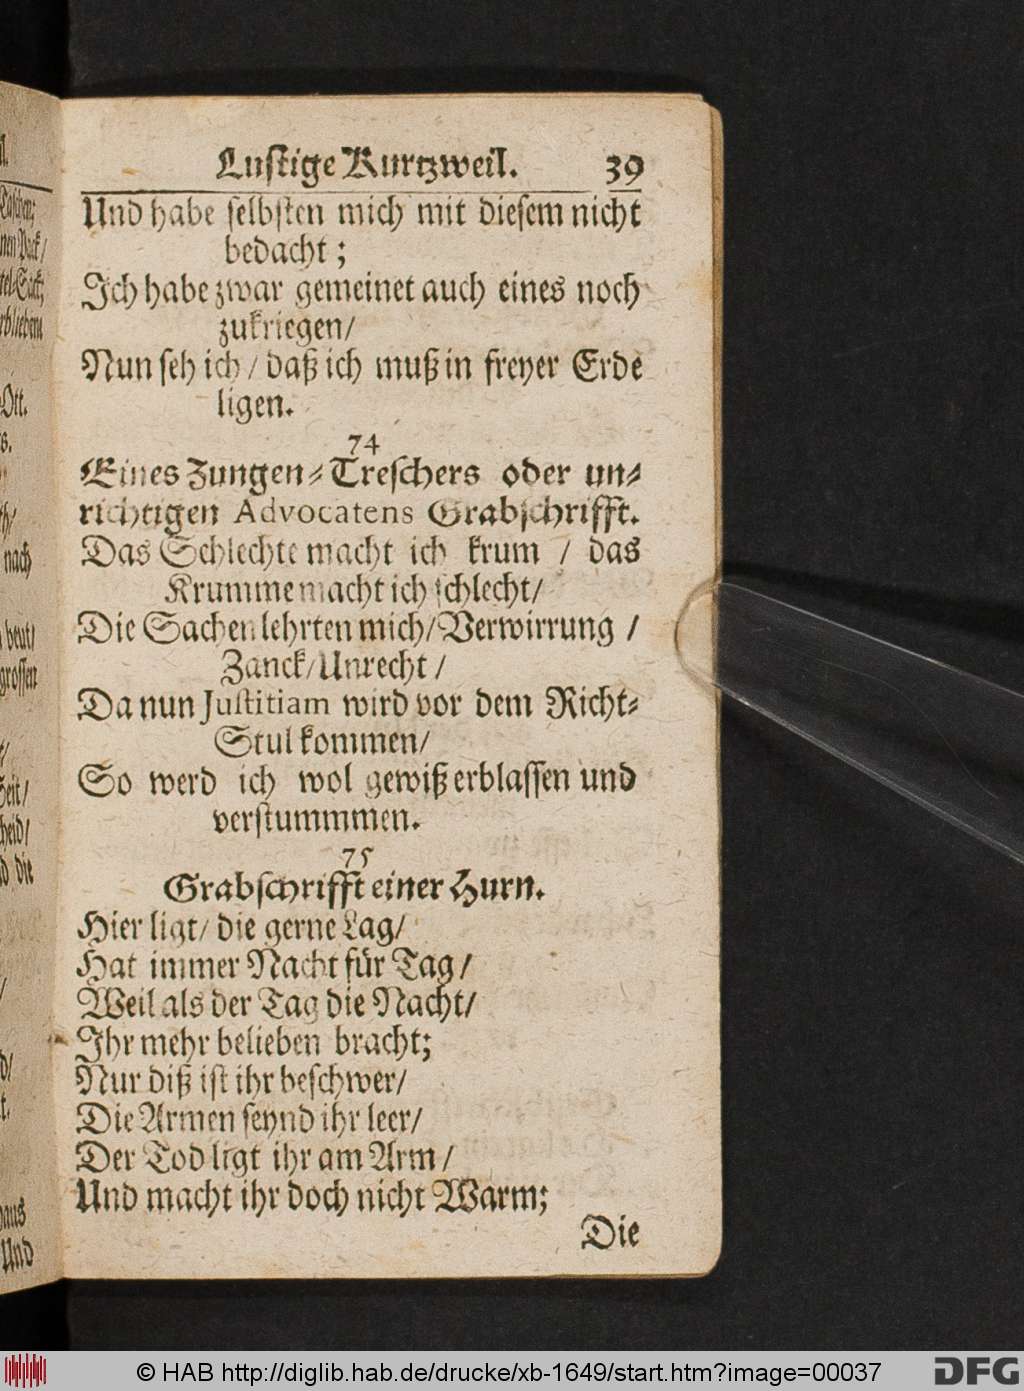 Lustige Kurtzweil. 39
Und habe selbsten mich mit diesem nicht
bedacht;
Ich habe zwar gemeinet auch eines noch
zukriegen/
Nun seh ich/ daß ich muß in freyer Erde
ligen.
74
Eines Zungen-Treschers oder un-
richtigen Advocatens Grabschrifft.
Das Schlechte macht ich krum / das
Krumme macht ich schlecht/
Die Sachen lehrten mich/Verwirrung /
Zanck/Unrecht /
Da nun Justitiam wird vor dem Richt-
Stul kommen/
So werd ich wol gewiß erblassen und
verstummmen.
75
Grabschrifft einer Hurn.
Hier ligt/ die gerne Lag/
Hat immer Nacht für Tag/
Weil als der Tag die Nacht/
Ihr mehr belieben bracht;
Nur diß ist ihr beschwer/
Die Armen seynd ihr leer/
Der Tod ligt ihr am Arm/
Und macht ihr doch nicht Warm;
Die
© HAB http://diglib.hab.de/drucke/xb-1649/start.htm?image=00037
DFG